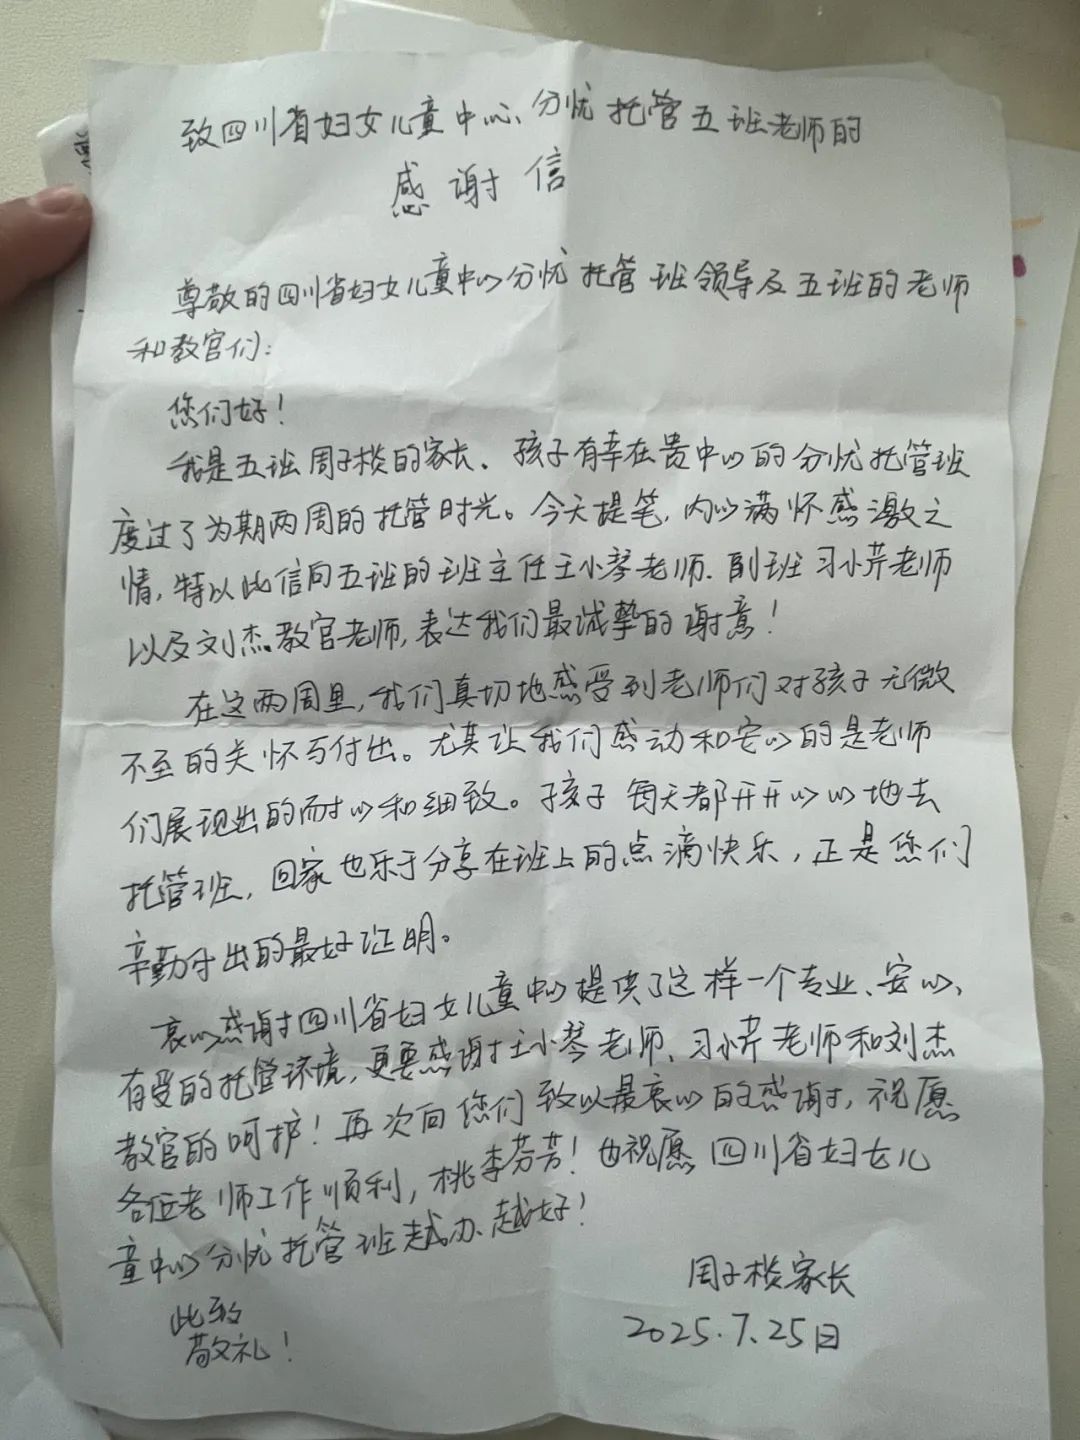 致四川省妇女儿童中心、分忧托管五班老师的
感谢信
尊敬的四川省妇女儿童中心分忧托管班领导及五班的老师
和教官们:
您们好!
我是五班周子棪的家长、孩子有幸在贵中心的分忧托管班
度过了为期两周的托管时光。今天提笔,内心满怀感激之
情,特以此信向五班的班主任王小琴老师、副班习小芹老师
以及刘杰教官老师,表达我们最诚挚的谢意!
在这两周里,我们真切地感受到老师们对孩子无微
不至的关怀与付出。尤其让我们感动和安心的是老师
们展现出的耐心和细致。孩子每天都开开心心地去
托管班,回家也乐于分享在班上的点滴快乐,正是您们
辛勤付出的最好证明。
衷心感谢四川省妇女儿童中心提供了这样一个专业、安心、
有爱的托管环境,更要感谢王小琴老师、习小芹老师和刘杰
教官的呵护!再次向您们致以最衷心的感谢,祝愿
各位老师工作顺利,桃李芬芳!也祝愿四川省妇女儿
童中心分忧托管班越办、越好!
周子棪家长
此致
2025.7.25日
敬礼!